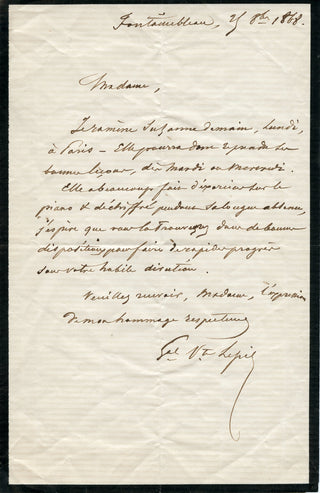 Fontainebleau, 25 8bre 1868.
Madame,
Je ramène Suzanne demain, Lundi,
à Paris – Elle pourra donc reprendre ses
bonnes leçons, dès Mardi ou Mercredi.
Elle a beaucoup fait d'exercices sur le
piano & déchiffré pendant sa longue absence,
j'espère que vous la trouverez dans de bonnes
dispositions pour faire de rapides progrès
sous votre habile direction.
Veuillez recevoir, Madame, l'expression
de mon hommage respectueux
Gal Vte